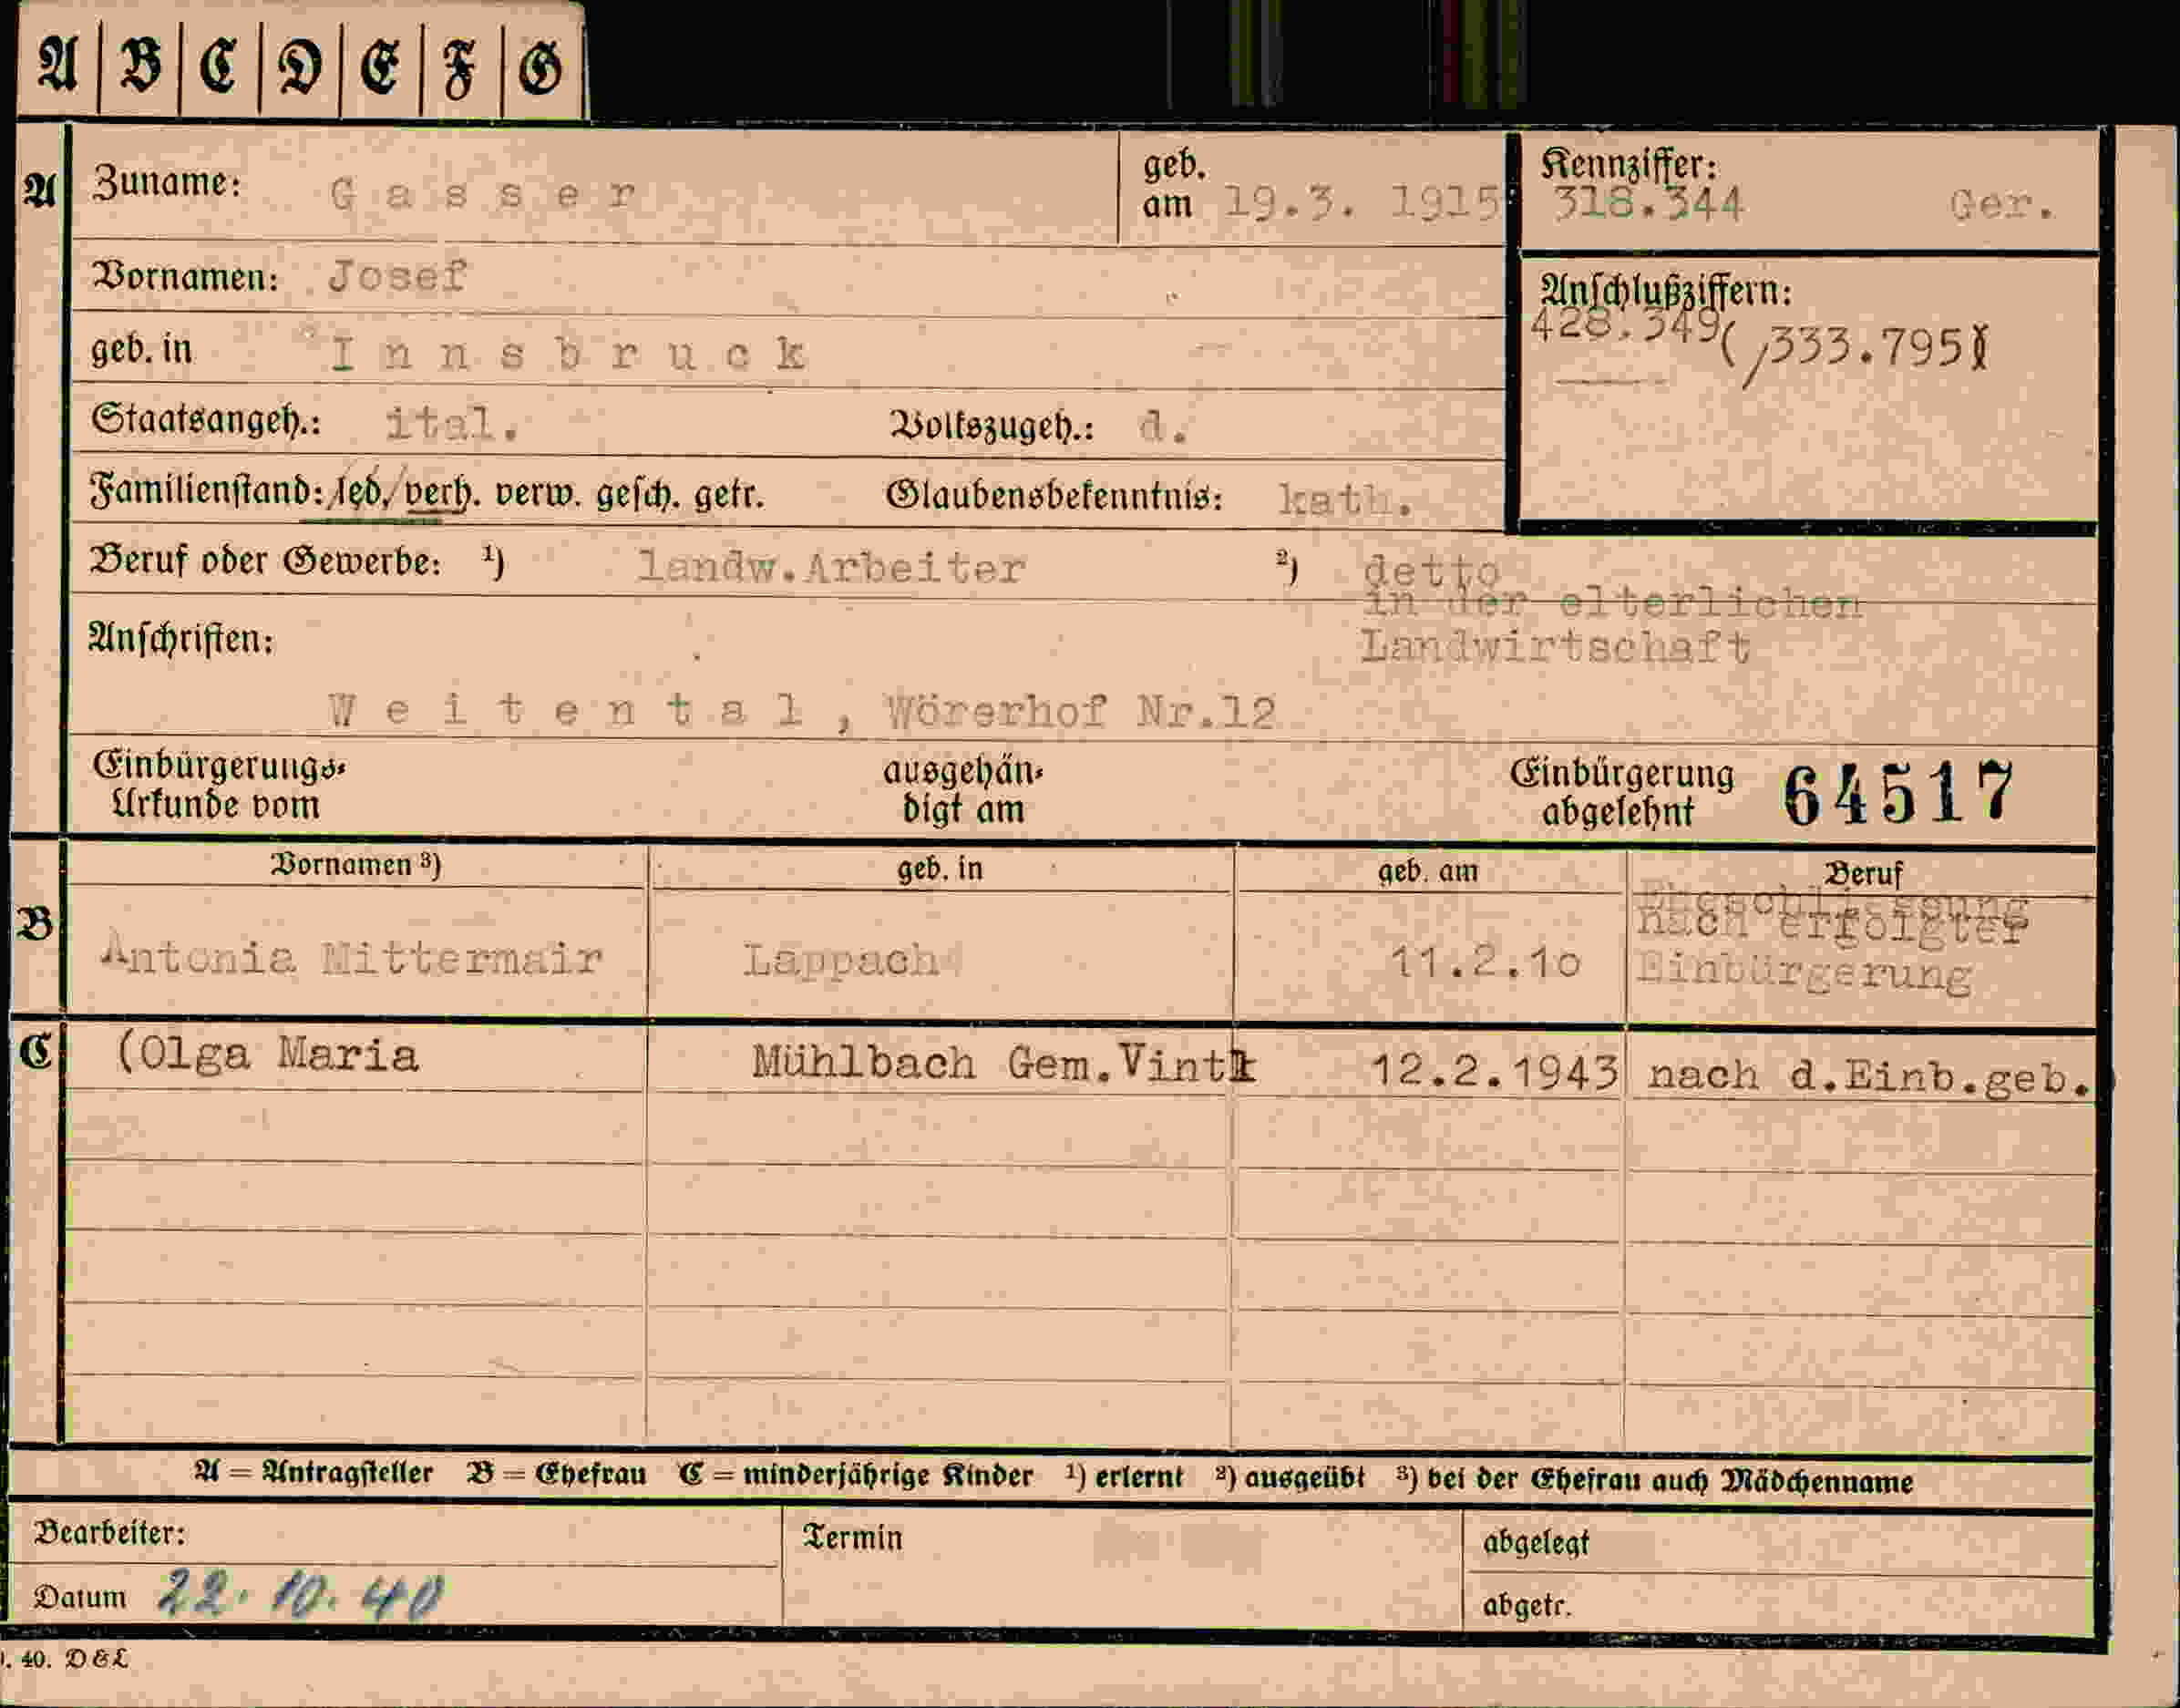 A | B | C | D | E | F | G
A Zuname: Gasser geb. am 19.3. 1915
Kennziffer: 318.344 Ger.
Vornamen: Josef
Anschlußziffern:
428.349 (,333.795)
geb. in Innsbruck
Staatsangeh.: ital. Volkszugeh.: d.
Familienstand: led. verh. verw. gesch. getr. Glaubensbekenntnis: kath.
Beruf oder Gewerbe: ¹) landw.Arbeiter ²) detto
in der elterlichen
Anschriften: Landwirtschaft
Weitental, Wörerhof Nr.12
Einbürgerungs-Urkunde vom ausgehändigt am Einbürgerung abgelehnt 64517
Vornamen ³) geb. in geb. am Beruf
Eheschliessung
nach erfolgter
B Antonia Mittermair Lappach 11.2.10 Einbürgerung
C (Olga Maria Mühlbach Gem.Vintl 12.2.1943 nach d.Einb.geb.)
A = Antragsteller B = Ehefrau C = minderjährige Kinder ¹) erlernt ²) ausgeübt ³) bei der Ehefrau auch Mädchenname
Bearbeiter: Termin abgelegt
Datum 22. 10. 40 abgetr.
. 40. D & L